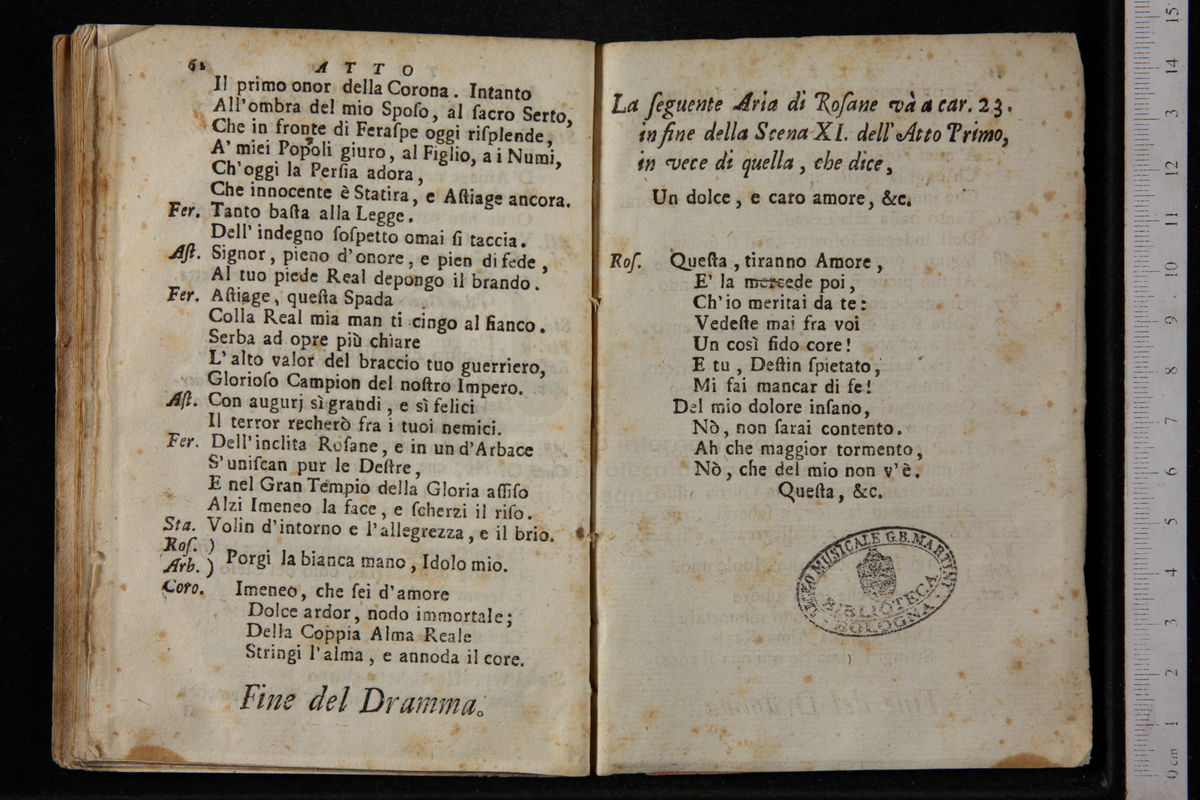 62
ATTO
Il primo onor della Corona. Intanto
All'ombra del mio Spoſo, al ſacro Serto,
Che in fronte di Feraſpe oggi riſplende,
A' miei Popoli giuro, al Figlio, a i Numi,
Ch'oggi la Perſia adora,
Che innocente è Statira, e Aſtiage ancora.
Fer. Tanto baſta alla Legge.
Dell' indegno ſoſpetto omai ſi taccia.
Aſt. Signor, pieno d'onore, e pien di fede,
Al tuo piede Real depongo il brando.
Fer. Aſtiage, queſta Spada
Colla Real mia man ti cingo al fianco.
Serba ad opre più chiare
L' alto valor del braccio tuo guerriero,
Glorioſo Campion del noſtro Impero.
Aſt. Con augurj sì grandi, e sì felici
Il terror recherò fra i tuoi nemici.
Fer. Dell'inclita Roſane, e in un d'Arbace
S'uniſcan pur le Deſtre,
E nel Gran Tempio della Gloria aſſiſo
Alzi Imeneo la face, e ſcherzi il riſo.
Sta. Volin d'intorno e l'allegrezza, e il brio.
Roſ. )
Arb. ) Porgi la bianca mano, Idolo mio.
Coro. Imeneo, che ſei d'amore
Dolce ardor, nodo immortale;
Della Coppia Alma Reale
Stringi l'alma, e annoda il core.
Fine del Dramma.
La ſeguente Aria di Roſane và a car. 23.
in fine della Scena XI. dell'Atto Primo,
in vece di quella, che dice,
Un dolce, e caro amore, &c.
Roſ. Queſta, tiranno Amore,
E' la mercede poi,
Ch'io meritai da te:
Vedeſte mai fra voi
Un così fido core!
E tu, Deſtin ſpietato,
Mi fai mancar di fe!
Del mio dolore inſano,
Nò, non ſarai contento.
Ah che maggior tormento,
Nò, che del mio non v'è.
Queſta, &c.
LICEO MUSICALE G.B. MARTINI
BIBLIOTECA
BOLOGNA
15
14
13
12
11
10
9
8
7
6
5
4
3
2
1
0 cm